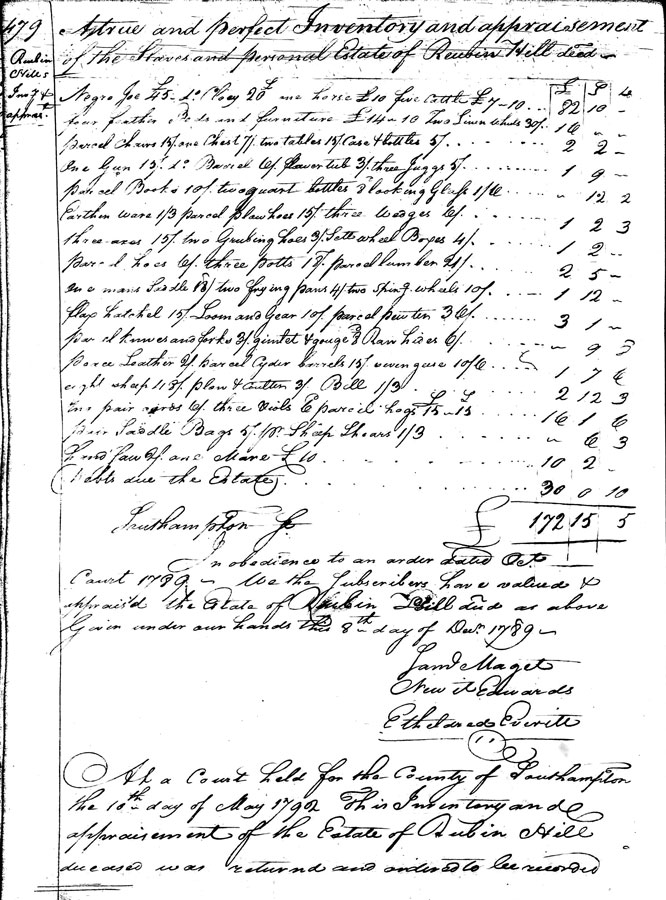 479 A true and perfect Inventory and appraisement
Reubin Hills Invy & apprat.
of the Slaves and personal Estate of Reubin Hill decd
£ S d
Negro Joe £45 - do Cloey 20£ one horse £10 five Cattle £7-10 82 10 -
four feather Beds and furniture £14-10 Two Linen wheels 30/. 16 - -
parcel Chairs 15/. one Chest 7/. two tables 15/. Case & bottles 5/. 2 2 -
One Gun 15/. do Barrel 6/. flower tub 3/. three Juggs 5/. 1 9 -
parcel Books 10/. two quart bottles & looking Glass 1/6 - 12 2
Earthen ware 1/3 parcel plow hoes 15/. three wedges 6/. 1 2 3
three axes 15/. two Grubing hoes 3/. Sett wheel Boxes 4/. 1 2 -
parcel hoes 6/. three potts 18/. parcel lumber 21/. 2 5 -
one mans Saddle 18/. two frying pans 4/. two Sping wheels 10/. 1 12 -
flax hatchel 15/. Loom and Gear 10/. parcel pewter 36/. 3 1 -
parcel knives and forks 3/. gimlet & gouge 3d Raw hides 6/. - 9 3
parcel Leather 2/. parcel Cyder barrels 15/. seven geese 10/6 1 7 6
eight sheep 48/. plow & Cutten 3/. Bell 1/3 2 12 3
one pair cards 6/. three Viols 6d parcel hogs £15-15 16 1 6
pair Saddle Bags 5/. pr Sheep Shears 1/3 - 6 3
hand Saw 2/. one Mare £10 10 2 -
Debts due the Estate 30 0 10
Southampton Sc £ 172 15 5
In obedience to an order dated Oct
Court 1789 - We the Subscribers have valued &
appraisd the Estate of Reubin Hill decd as above
Given under our hands this 8th day of Decr 1789 -
Saml Maget
Newit Edwards
Etheldred Everitt
At a Court held for the County of Southampton
the 10th day of May 1792 This Inventory and
appraisement of the Estate of Rubin Hill
deceased was returnd and ordered to be recorded